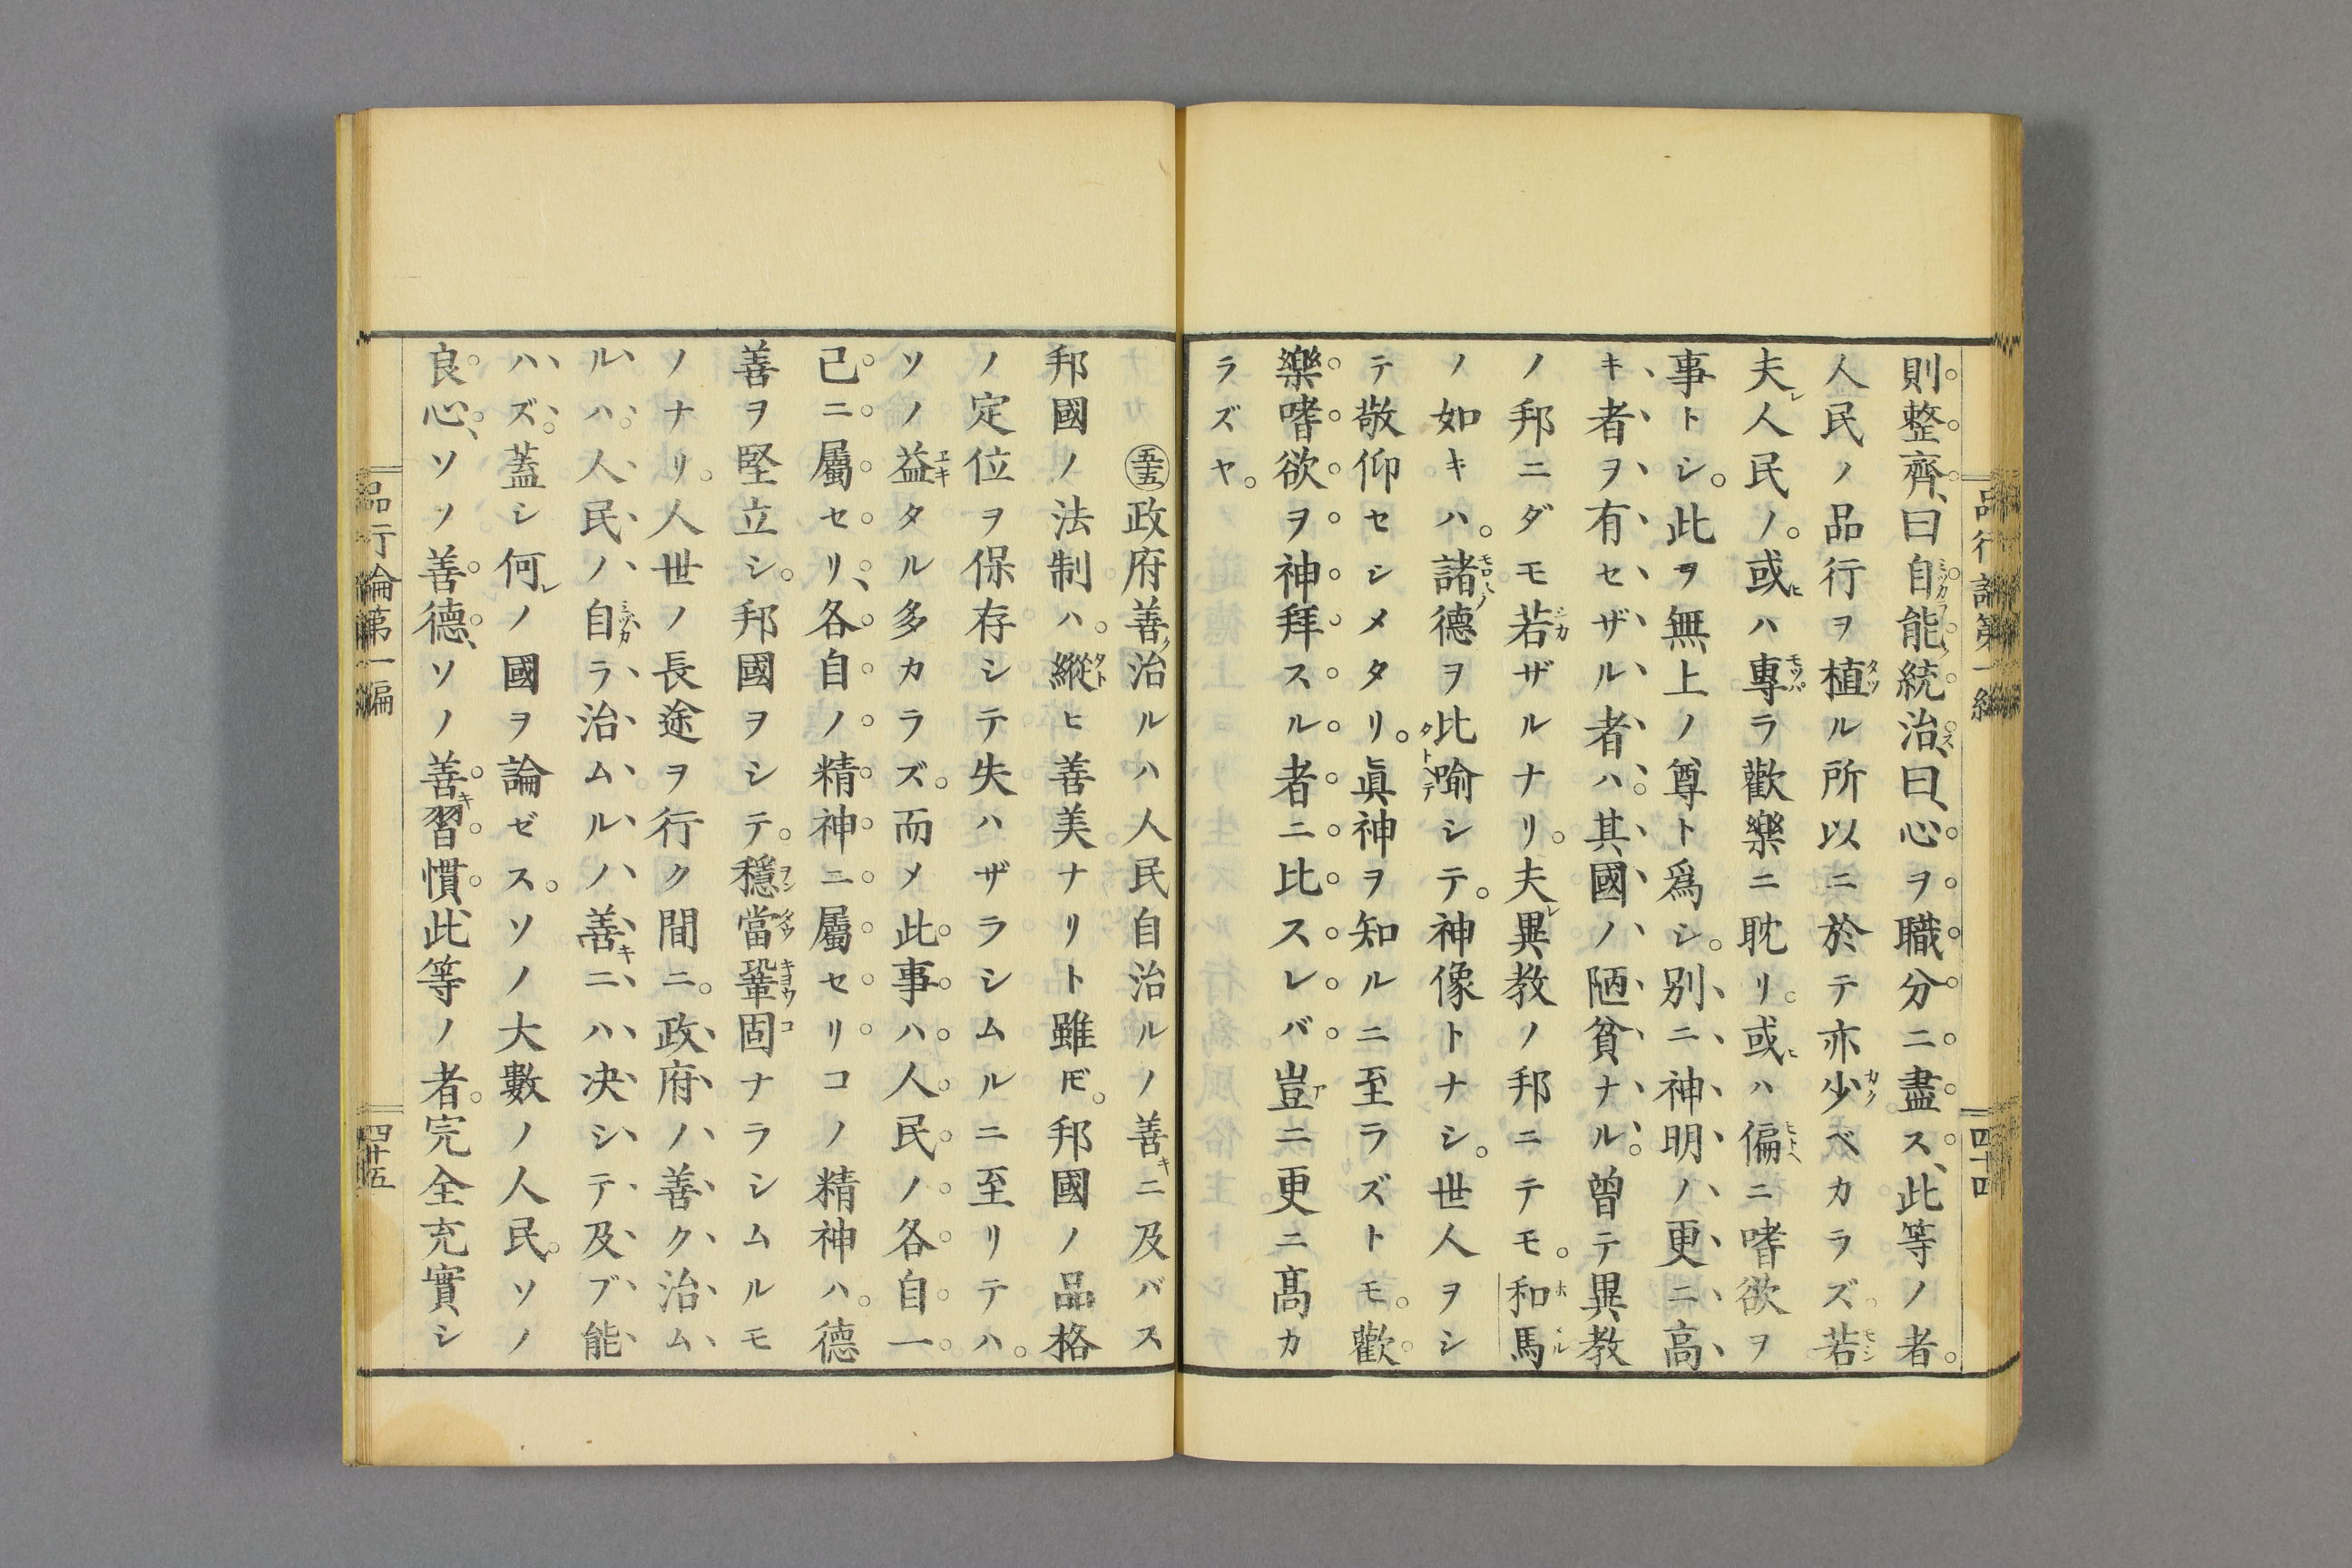 則整齊、曰自能統治、曰、心ヲ職分ニ盡ス、此等ノ者。
人民ノ品行ヲ植ル所以ニ於テ亦少ベカラズ。若
夫人民ノ。或ハ專ラ歡樂ニ耽リ。或ハ偏ニ嗜欲ヲ
事トシ。此ヲ無上ノ尊ト爲シ。別ニ神明ノ更ニ高
キ者ヲ有セザル者ハ。其國ノ陋貧ナル。曾テ異教
ノ邦ニダモ若ザルナリ。夫異教ノ邦ニテモ。和馬
ノ如キハ。諸德ヲ比喻シテ。神像トナシ。世人ヲシ
テ敬仰セシメタリ。眞神ヲ知ルニ至ラズトモ。歡
樂嗜欲ヲ神拜スル者ニ比スレバ。豈ニ更ニ髙カ
ラズヤ。
品行論第一編
四十四
㊄政府善治ルハ人民自治ルノ善ニ及バス
邦國ノ法制ハ。縱ヒ善美ナリト雖𪜈。邦國ノ品格
ノ定位ヲ保存シテ失ハザラシムルニ至リテハ。
ソノ益タル多カラズ。而メ此事ハ人民ノ各自一
己ニ屬セリ、各自ノ精神ニ屬セリコノ精神ハ。德
善ヲ堅立シ。邦國ヲシテ。穩當鞏固ナラシムルモ
ノナリ。人世ノ長途ヲ行ク間ニ。政府ノ善ク治ム
ルハ。人民ノ自ラ治ムルノ善ニハ決シテ及ブ能
ハズ。蓋シ何ノ國ヲ論ゼス。ソノ大數ノ人民。ソノ
良心、ソノ善德、ソノ善習慣、此等ノ者。完全充實シ
品行論第一編
四十五